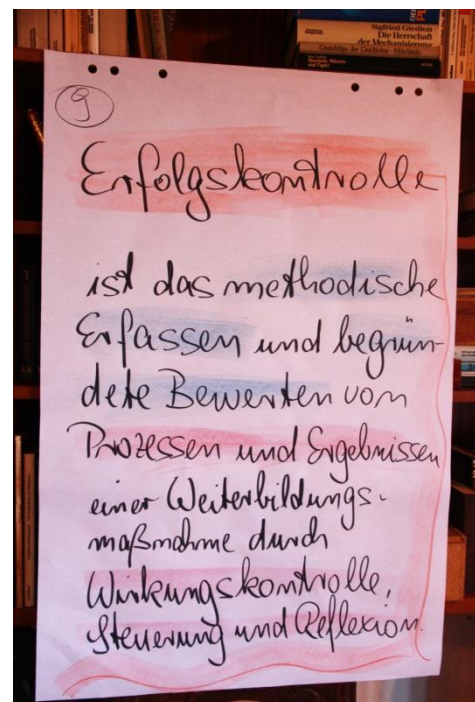 Sigfried Giedion
Die Herrschaft
der Mechanisierung
9
Erfolgskontrolle
ist das methodische
Erfassen und begrün-
dete Bewerten von
Prozessen und Ergebnissen
einer Weiterbildungs-
maßnahme durch
Wirkungskontrolle,
Steuerung und Reflexion.